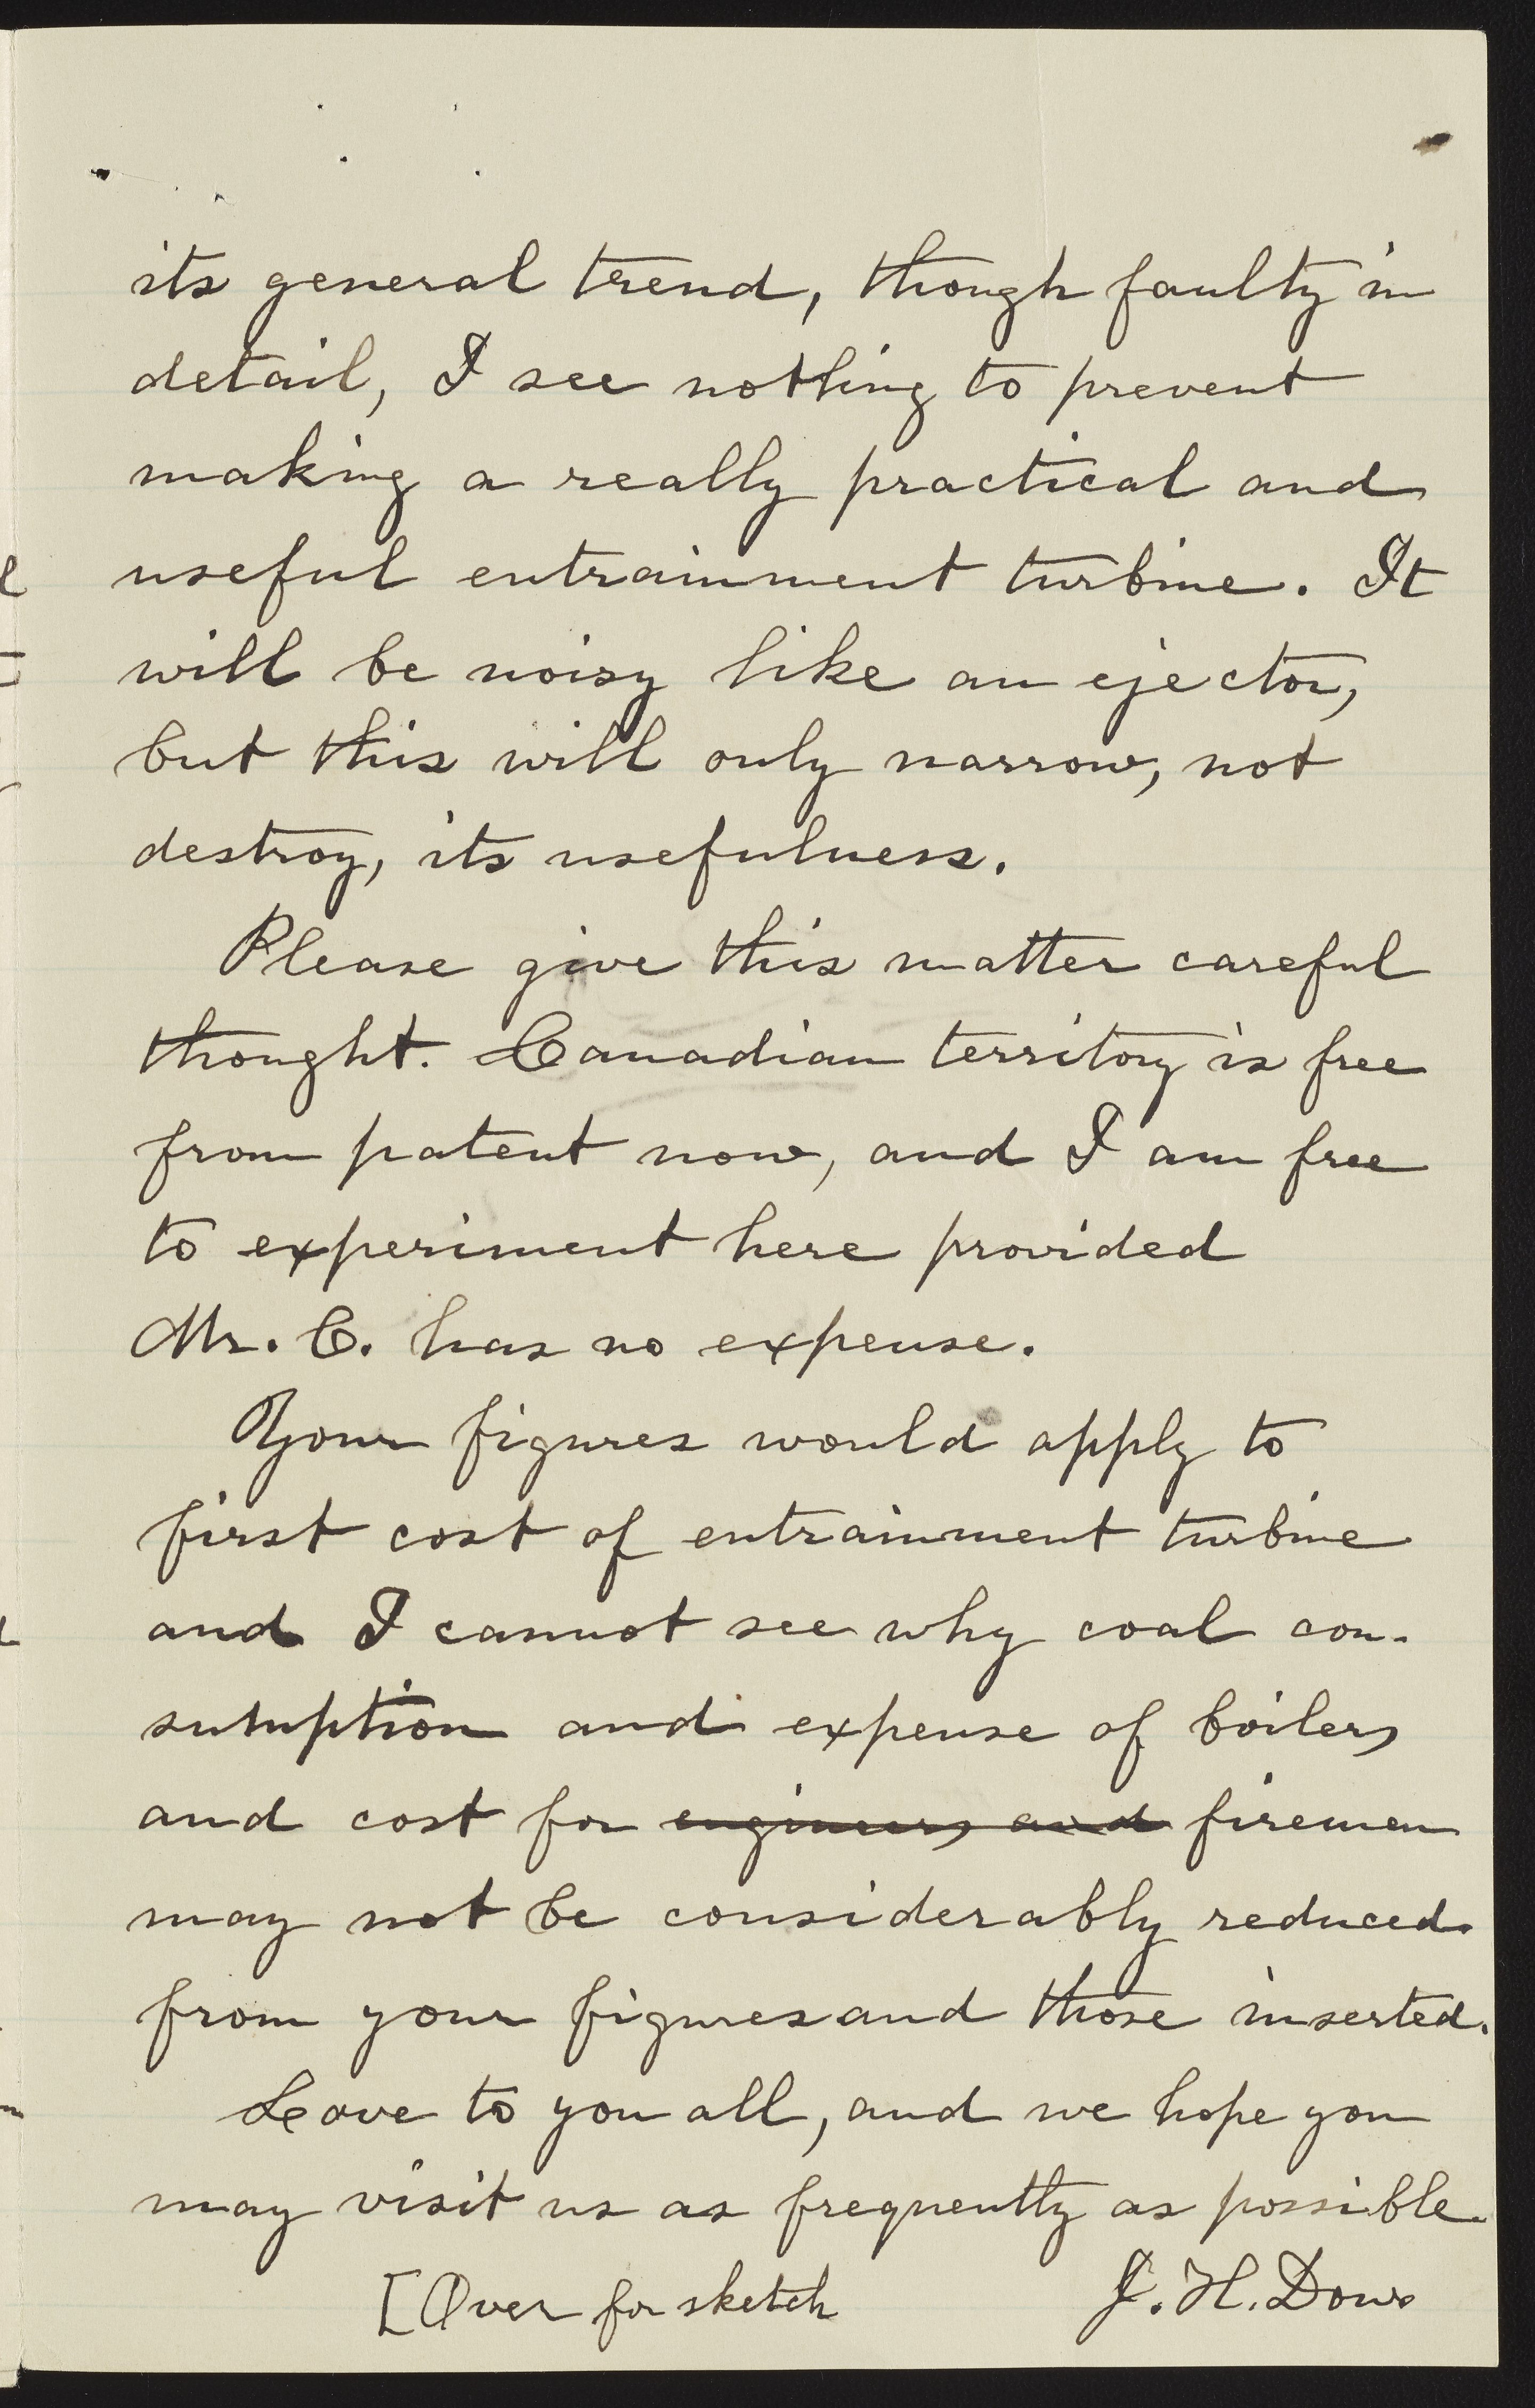 its general trend, though faulty in
detail, I see nothing to prevent
making a really practical and
useful entrainment turbine. It
will be noisy like an ejector,
but this will only narrow, not
destroy, its usefulness.
Please give this matter careful
thought. Canadian territory is free
from patent now, and I am free
to experiment here provided
Mr. C. has no expense.
Your figures would apply to
first cost of entrainment turbine
and I cannot see why coal con-
sumption and expense of boilers
and cost for engineers and firemen
may not be considerably reduced
from your figures and those inserted.
Love to you all, and we hope you
may visit us as frequently as possible.
[Over for sketch J. H. Dow